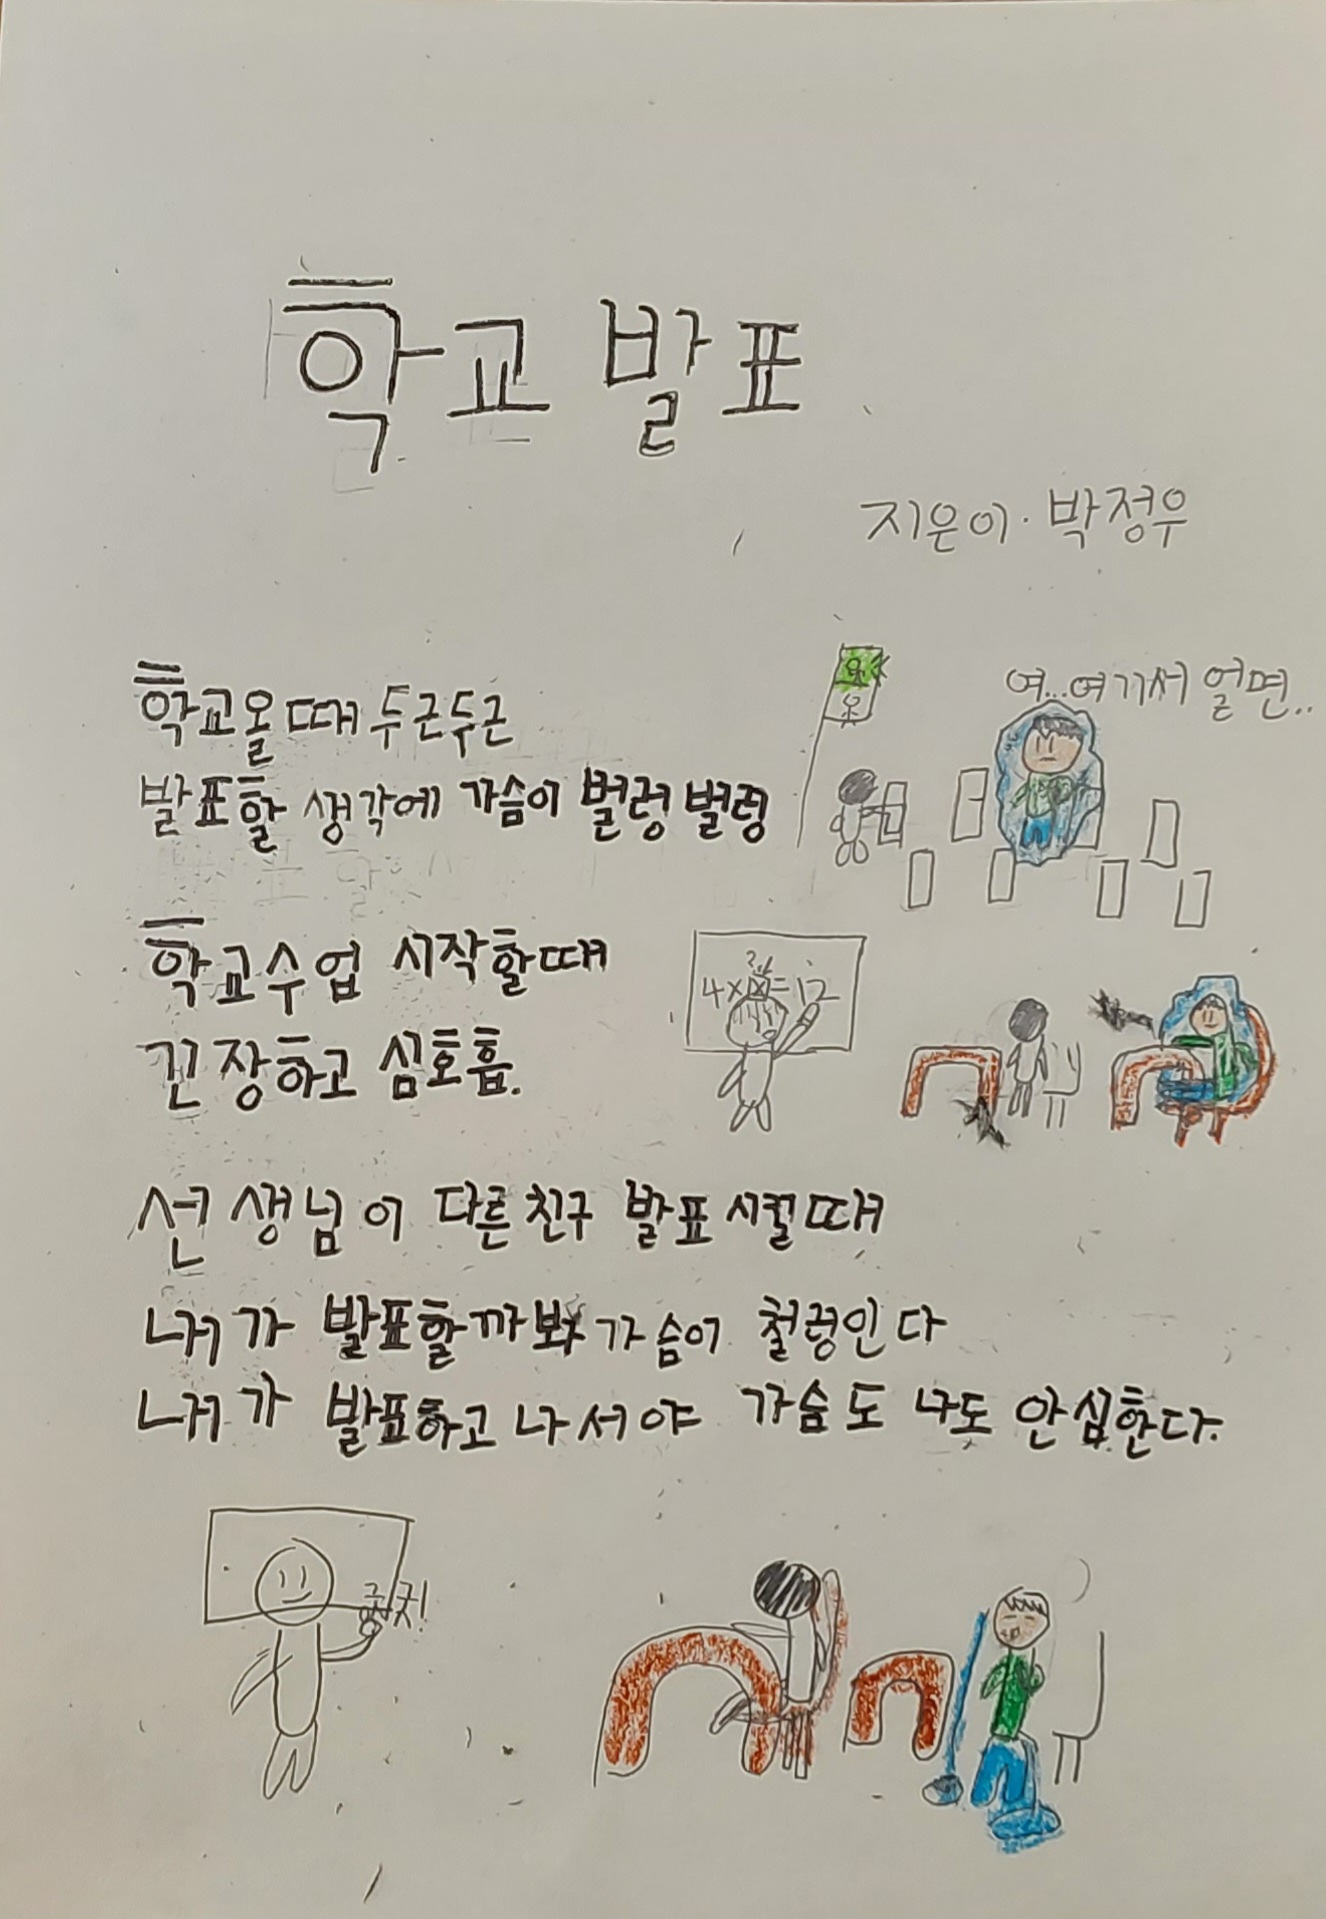 학교 발표
지은이. 박정우
학교올때 두근두근
여...여기서 얼면..
발표할 생각에 가슴이 벌렁벌렁
학교수업 시작할때
긴장하고 심호흡.
4×□=12
선생님이 다른친구 발표시킬때
내가 발표할까봐 가슴이 철렁인다
내가 발표하고 나서야 가슴도 나도 안심한다.
굿!